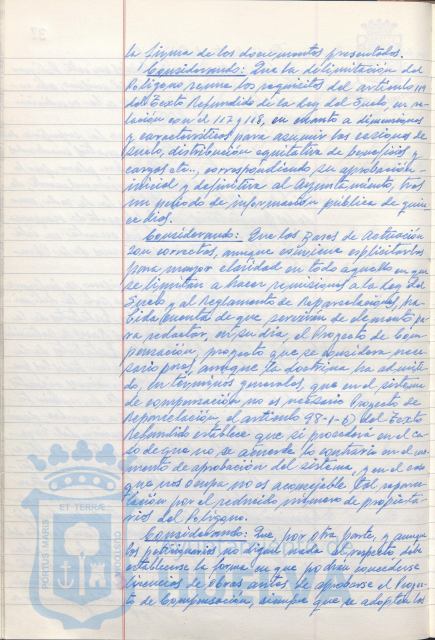 la firma de los documentos presentados.
Considerando: Que la delimitación del
Polígono reune los requisitos del artículo 119
del Texto Refundido de la Ley del Suelo, en re-
lación con el 117 y 118, en cuanto a dimensiones
y características para asumir las cesiones de
suelo, distribución equitativa de beneficios y
cargas etc., correspondiendo su aprobación
inicial y definitiva al Ayuntamiento, tras
un período de información pública de quin-
ce días.
Considerando: Que las Bases de Actuación
son correctas, aunque conviene explicitarlas
para mayor claridad en todo aquello en que
se limitan a hacer remisiones a la Ley del
Suelo y al Reglamento de Reparcelaciones, ha-
bida cuenta de que servirán de elemento pa-
ra redactar, en su día, el Proyecto de Com-
pensación, proyecto que se considera nece-
sario pues, aunque la doctrina ha admiti-
do, en términos generales, que en el sistema
de compensación no es necesario Proyecto de
Reparcelación, el artículo 98-1-b) del Texto
Refundido establece que si procederá en el ca-
so de que no se acuerde lo contrario en el mo-
mento de aprobación del sistema, y en el caso
que nos ocupa no es aconsejable tal
por el reducido número de propieta-
rios del Polígono.
Considerando: Que, por otra parte, y aunque
los peticionarios no digan nada al respecto debe
establecerse la forma en que podrán concederse
licencias de obras antes de aprobarse el Proyec-
to de Compensación, siempre que se adopten las
PORTUS MARIS
ET TERRÆ
CUSTODIA